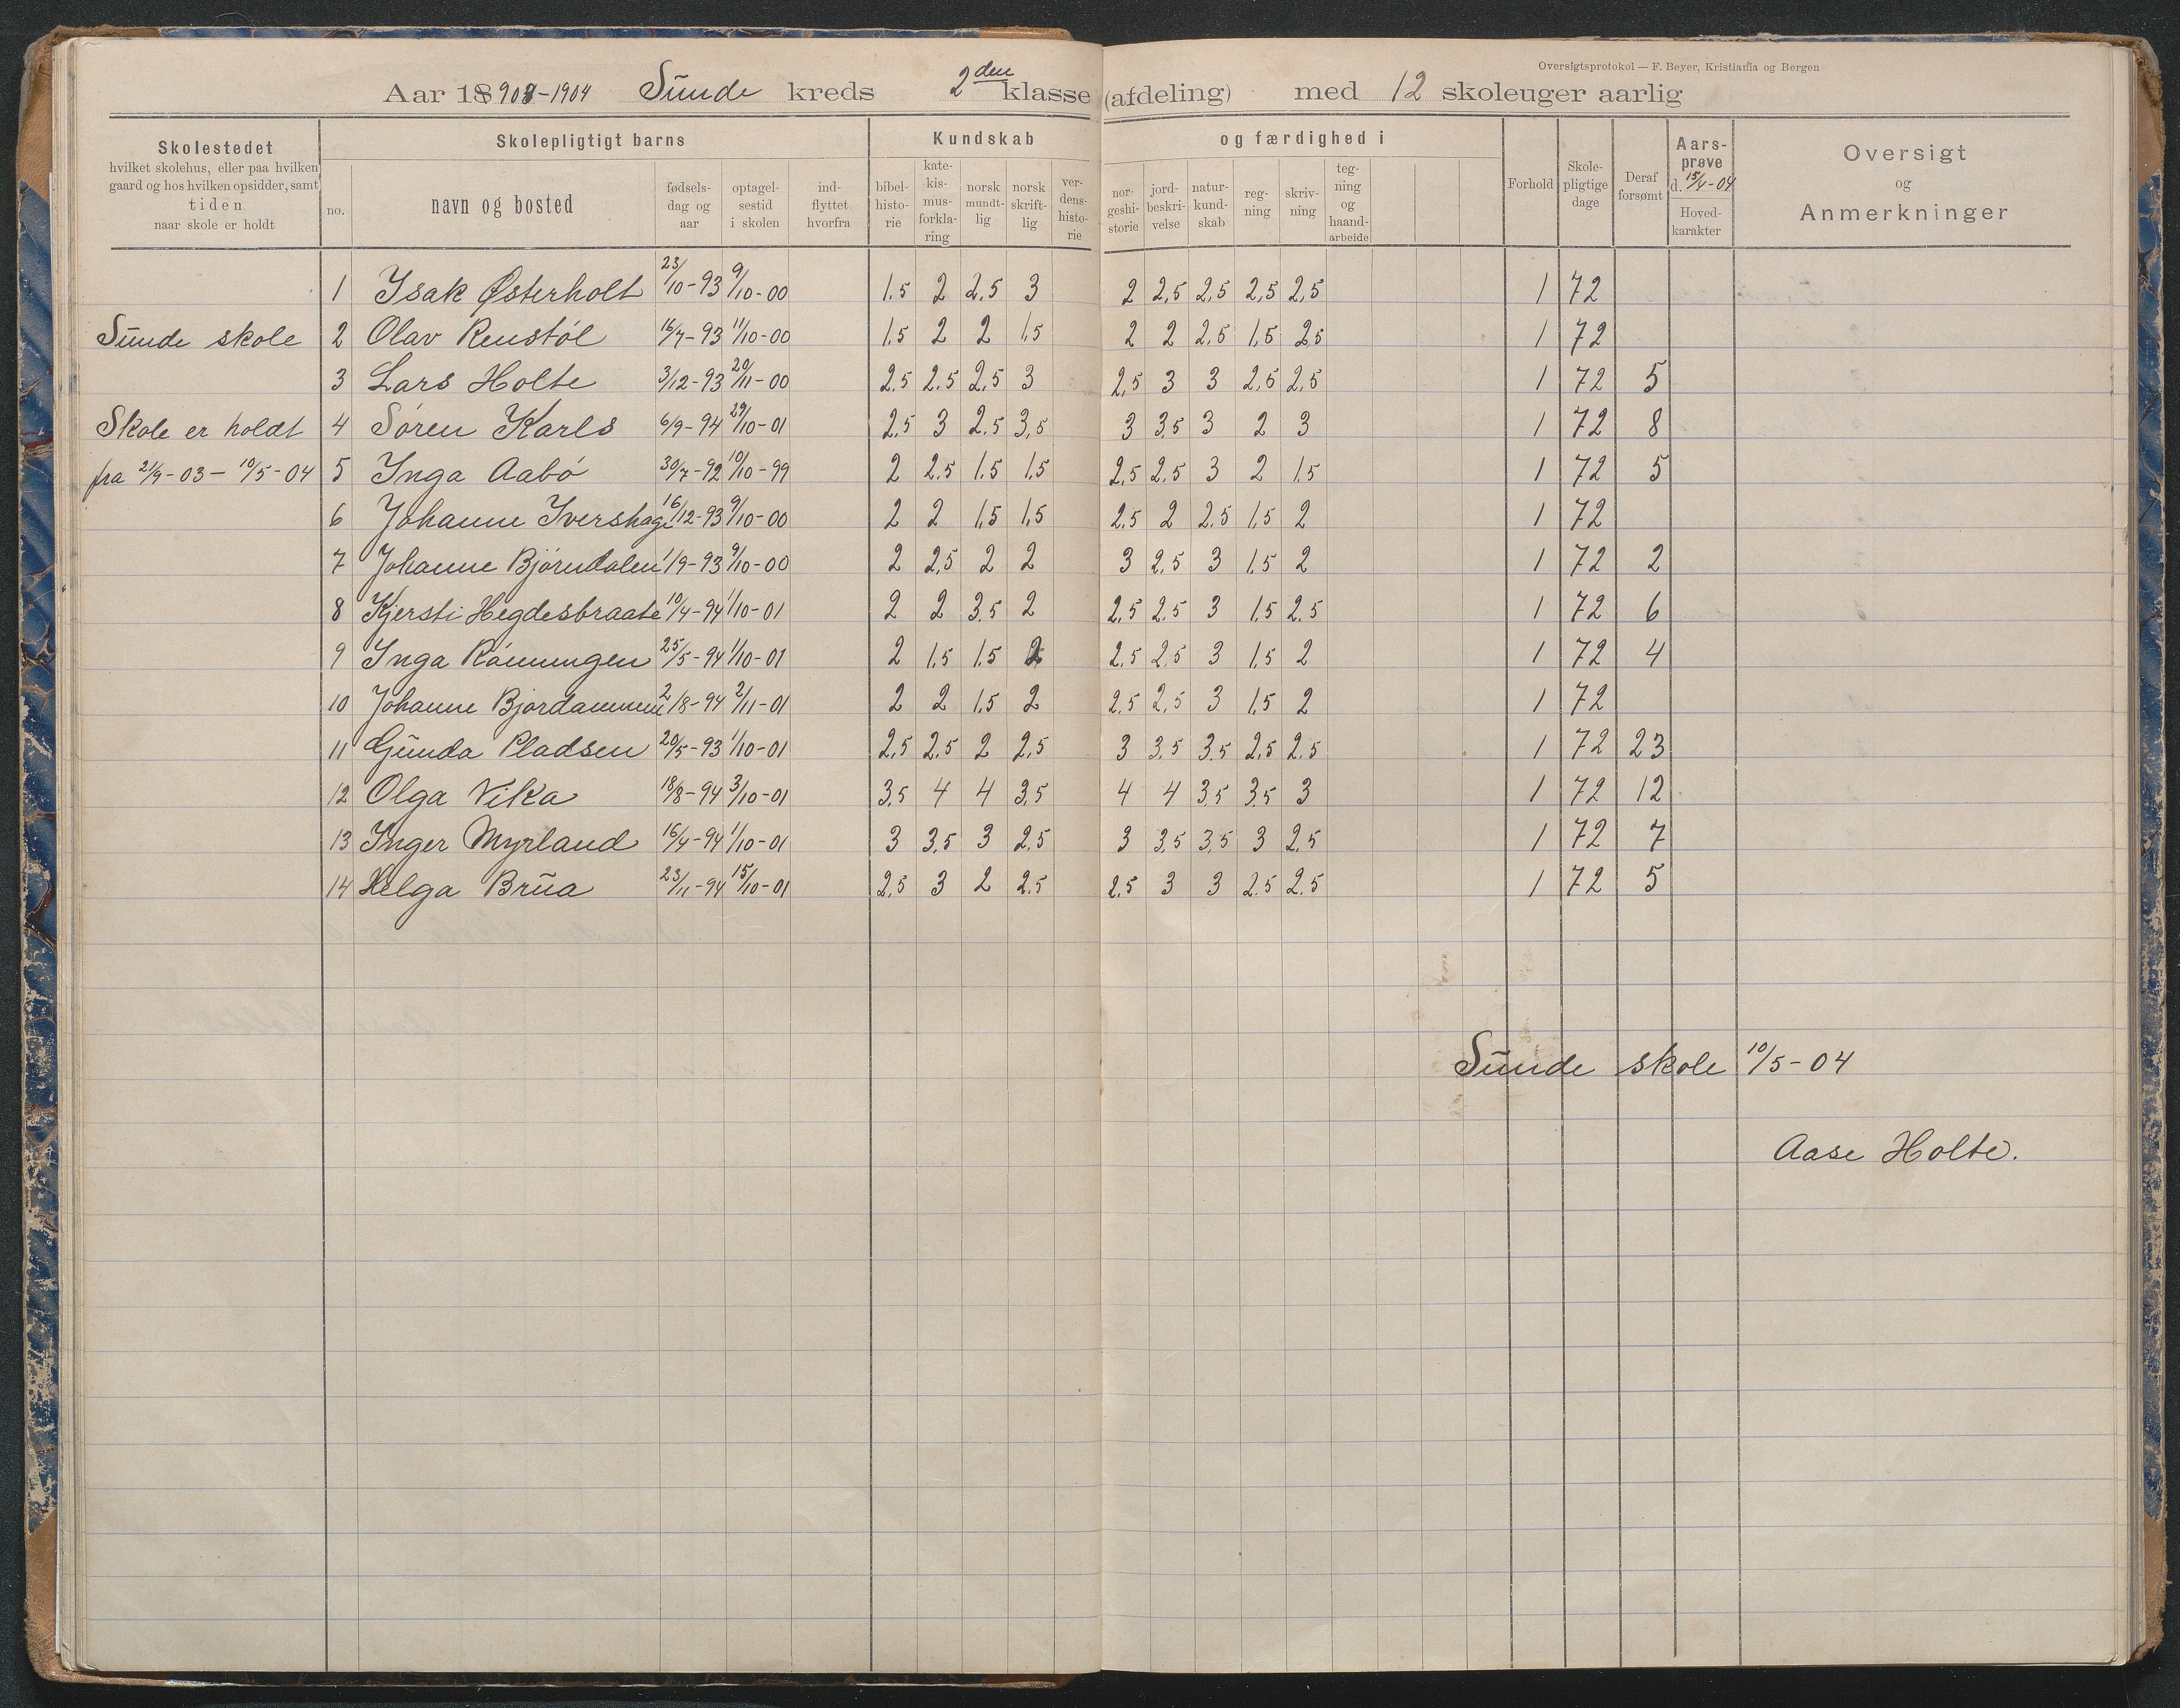 Oversigtsprotokol — F. Beyer, Kristiania og Bergen
Aar 1903-1904 Sunde kreds 2den klasse (afdeling) med 12 skoleuger aarlig
Skolestedet
hvilket skolehus, eller paa hvilken
gaard og hos hvilken opsidder, samt
tiden
naar skole er holdt
Skolepligtigt barns
no.
navn og bosted
fødsels-
dag og
aar
optagel-
sestid
i skolen
ind-
flyttet
hvorfra
Kundskab
bibel-
histo-
rie
kate-
kis-
mus-
forkla-
ring
norsk
mundt-
lig
norsk
skrift-
lig
ver-
dens-
histo-
rie
og færdighed i
nor-
geshi-
storie
jord-
beskri-
velse
natur-
kund-
skab
reg-
ning
skriv-
ning
teg-
ning
og
haand-
arbeide
Forhold
Skole-
pligtige
dage
Deraf
forsømt
Aars-
prøve
d. 15/4-04
Hoved-
karakter
Oversigt
og
Anmerkninger
1 Isak Østerholt 23/10-93 9/10-00 1.5 2 2,5 3 2 2,5 2,5 2,5 2,5 1 72
Sunde skole 2 Olav Renstøl 16/7-93 11/10-00 1.5 2 2 1,5 2 2 2,5 1,5 2,5 1 72
3 Lars Holte 3/12-93 20/11-00 2,5 2.5 2,5 3 2,5 3 3 2,5 2,5 1 72 5
Skole er holdt 4 Søren Karls 6/9-94 29/10-01 2,5 3 2.5 3,5 3 3,5 3 2 3 1 72 8
fra 21/9-03 - 10/5-04 5 Inga Aabø 30/7-92 10/10-99 2 2,5 1.5 1,5 2,5 2,5 3 2 1,5 1 72 5
6 Johanne Ivershage 16/12-93 9/10-00 2 2 1,5 1,5 2,5 2 2,5 1,5 2 1 72
7 Johanne Bjørndalen 1/9-93 9/10-00 2 2,5 2 2 3 2,5 3 1,5 2 1 72 2
8 Kjersti Hegdesbraate 10/4-94 1/10-01 2 2 3,5 2 2,5 2,5 3 1,5 2,5 1 72 6
9 Inga Rønningen 25/5-94 1/10-01 2 1,5 1.5 2 2,5 2,5 3 1,5 2 1 72 4
10 Johanne Bjordammene 2/8-94 2/11-01 2 2 1,5 2 2,5 2,5 3 1,5 2 1 72
11 Gunda Pladsen 20/5-93 1/10-01 2,5 2,5 2 2,5 3 3,5 3.5 2,5 2.5 1 72 23
12 Olga Vika 18/8-94 3/10-01 3,5 4 4 3,5 4 4 3,5 3,5 3 1 72 12
13 Inger Myrland 16/4-94 1/10-01 3 3,5 3 2,5 3 3,5 3,5 3 2,5 1 72 7
14 Helga Brua 23/11-94 15/10-01 2,5 3 2 2,5 2,5 3 3 2,5 2,5 1 72 5
Sunde skole 10/5-04
Aase Holte.